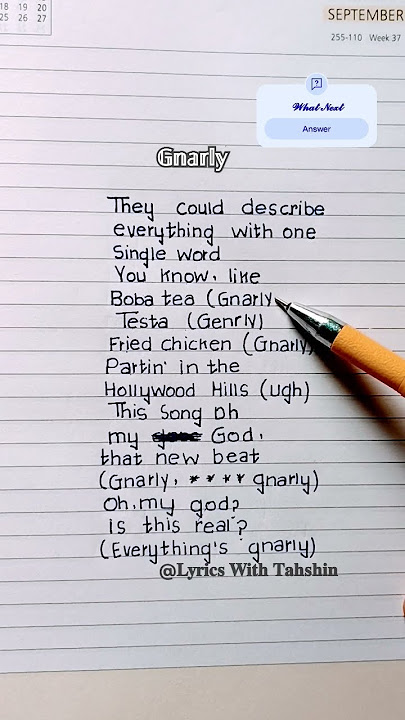 18 19 20
25 26 27
SEPTEMBER
255-110 Week 37
What Next
Answer
Gnarly
They could describe
everything with one
Single word
You know, like
Boba tea (Gnarly
Testa (Genrly)
Fried chicken (Gnarly)
Partin' in the
Hollywood Hills (ugh)
This Song Oh
my God,
that new beat
(Gnarly, **** gnarly)
Oh, my god?
is this real?
(Everything's gnarly)
@Lyrics With Tahshin